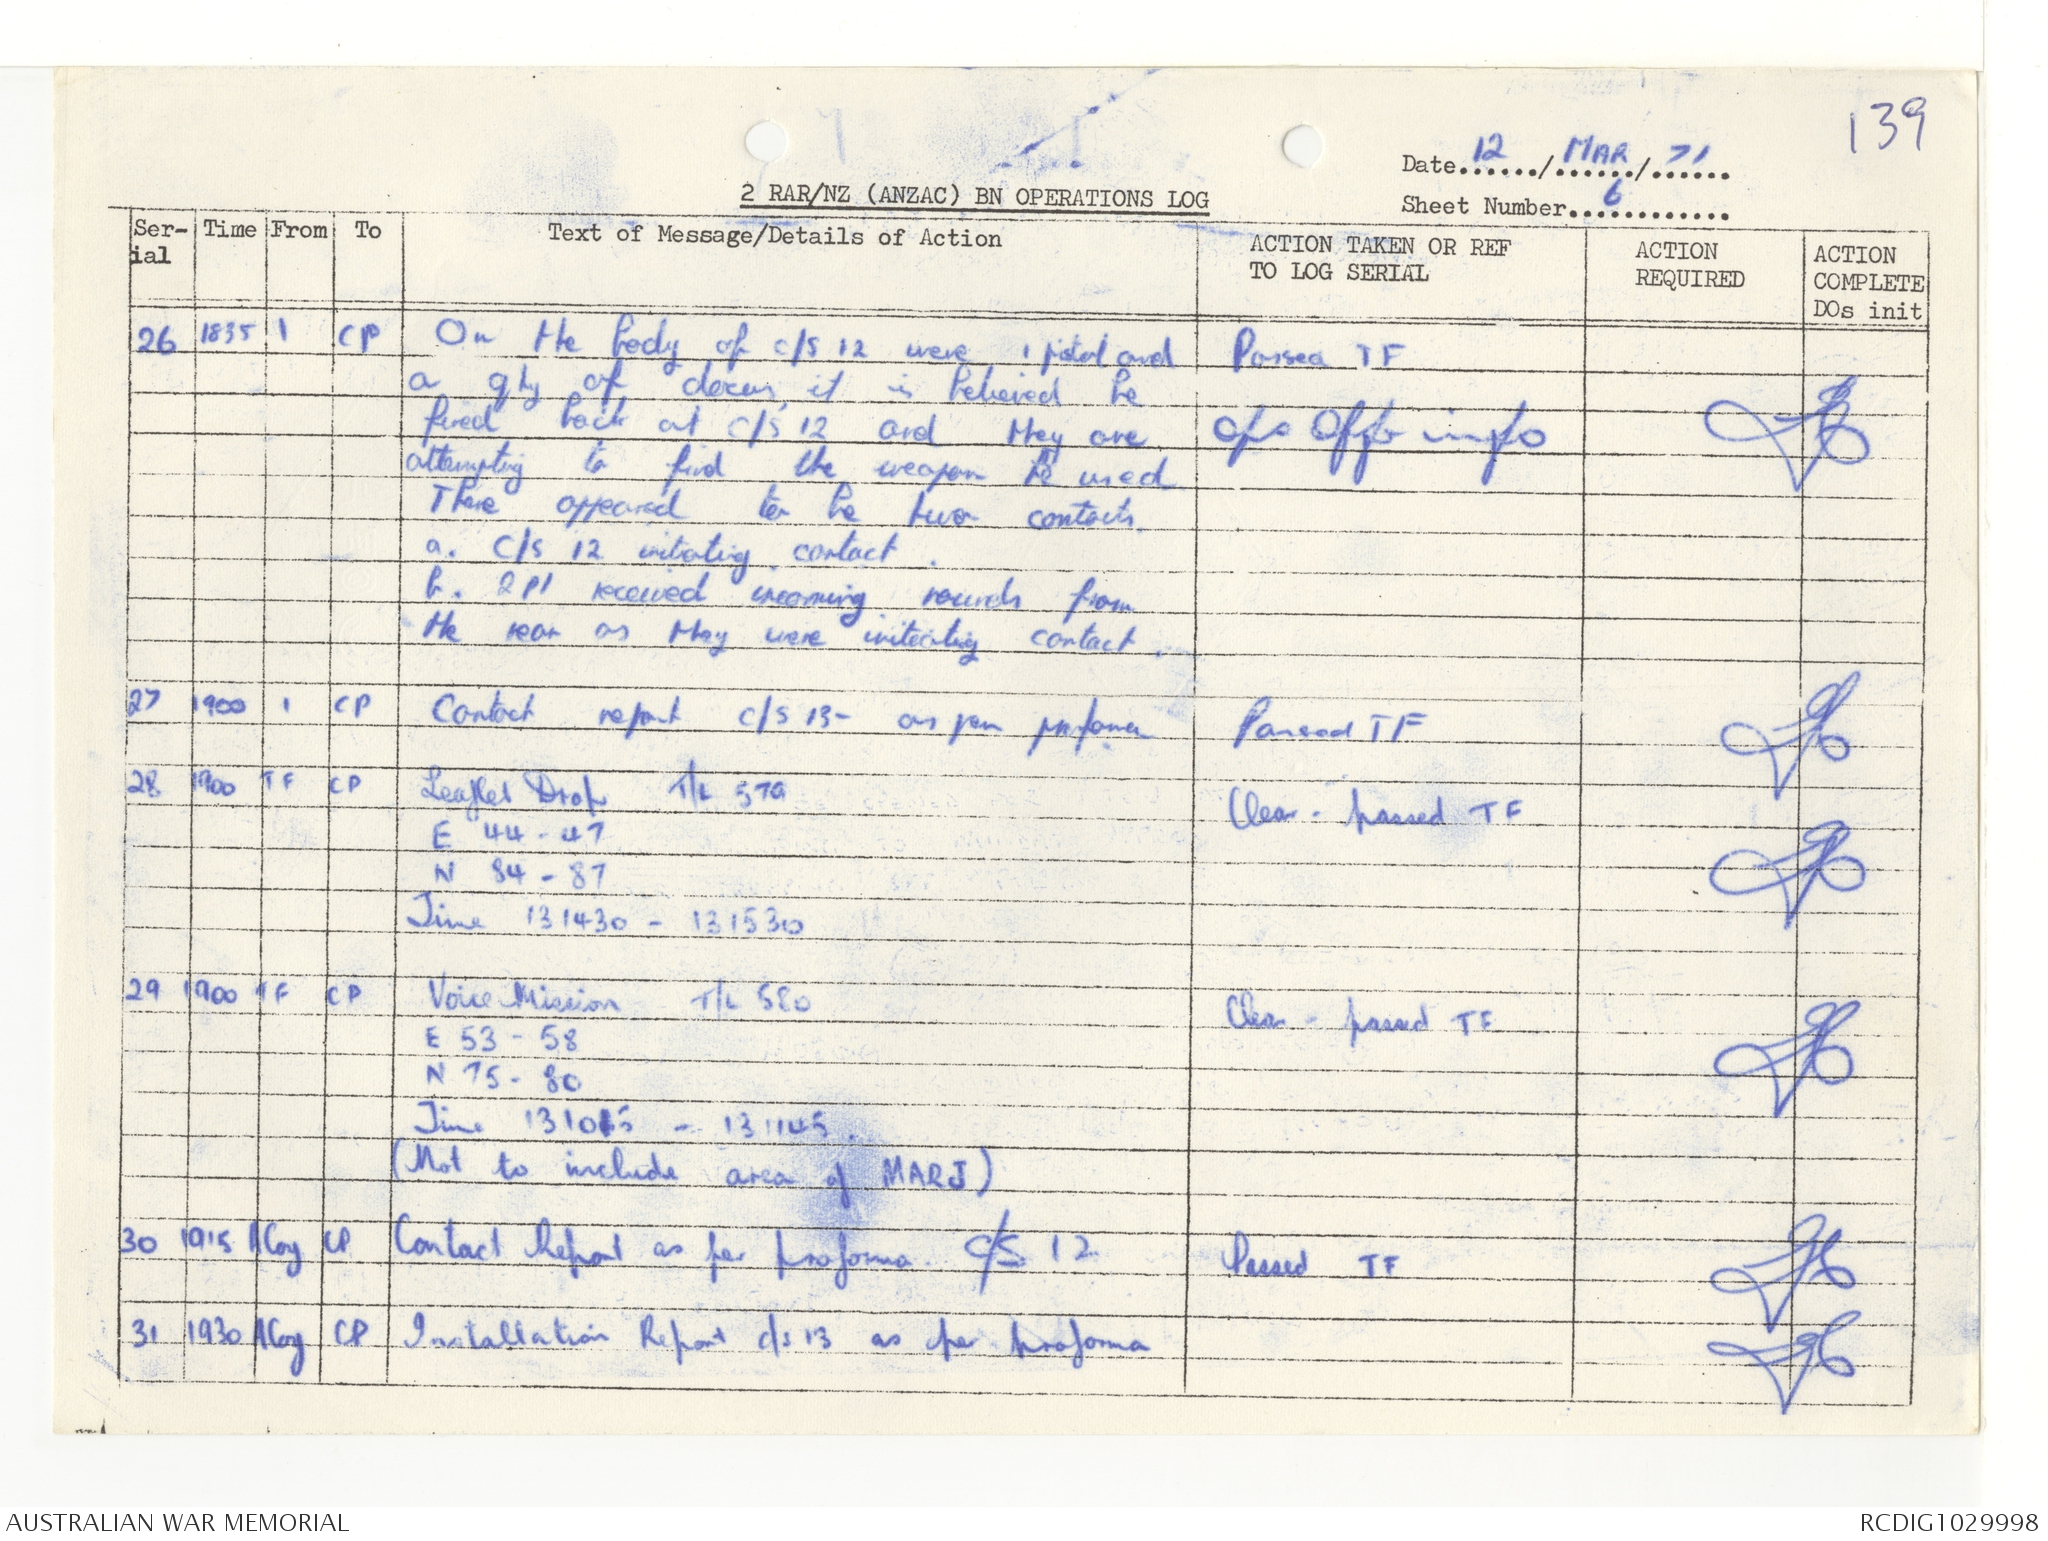 139
Date 12 / MAR / 71
2 RAR/NZ (ANZAC) BN OPERATIONS LOG
Sheet Number 6
Ser-ial Time From To Text of Message/Details of Action ACTION TAKEN OR REF TO LOG SERIAL ACTION REQUIRED ACTION COMPLETE DOs init
26 1835 1 CP On the body of c/s 12 were 1 pistol and Passed TF
a qty of docus, it is believed he
fired back at c/s 12 and they are Ops Offr info
attempting to find the weapon he used
There appeared to be two contacts.
a. C/S 12 initiating contact.
b. 2 Pl received incoming rounds from
the rear as they were initiating contact.
27 1900 1 CP Contact report c/s 13- as per proforma Passed TF
28 1900 TF CP Leaflet Drop T/L 579 Clear - passed TF
E 44-47
N 84-87
Time 131430 - 131530
29 1900 TF CP Voice Mission T/L 580 Clear - passed TF
E 53-58
N 75-80
Time 131045 - 131145.
(Not to include area of MARJ)
30 1915 A Coy CP Contact Report as per proforma. C/S 12 Passed TF
31 1930 A Coy CP Installation Report c/s 13 as per proforma
AUSTRALIAN WAR MEMORIAL RCDIG1029998